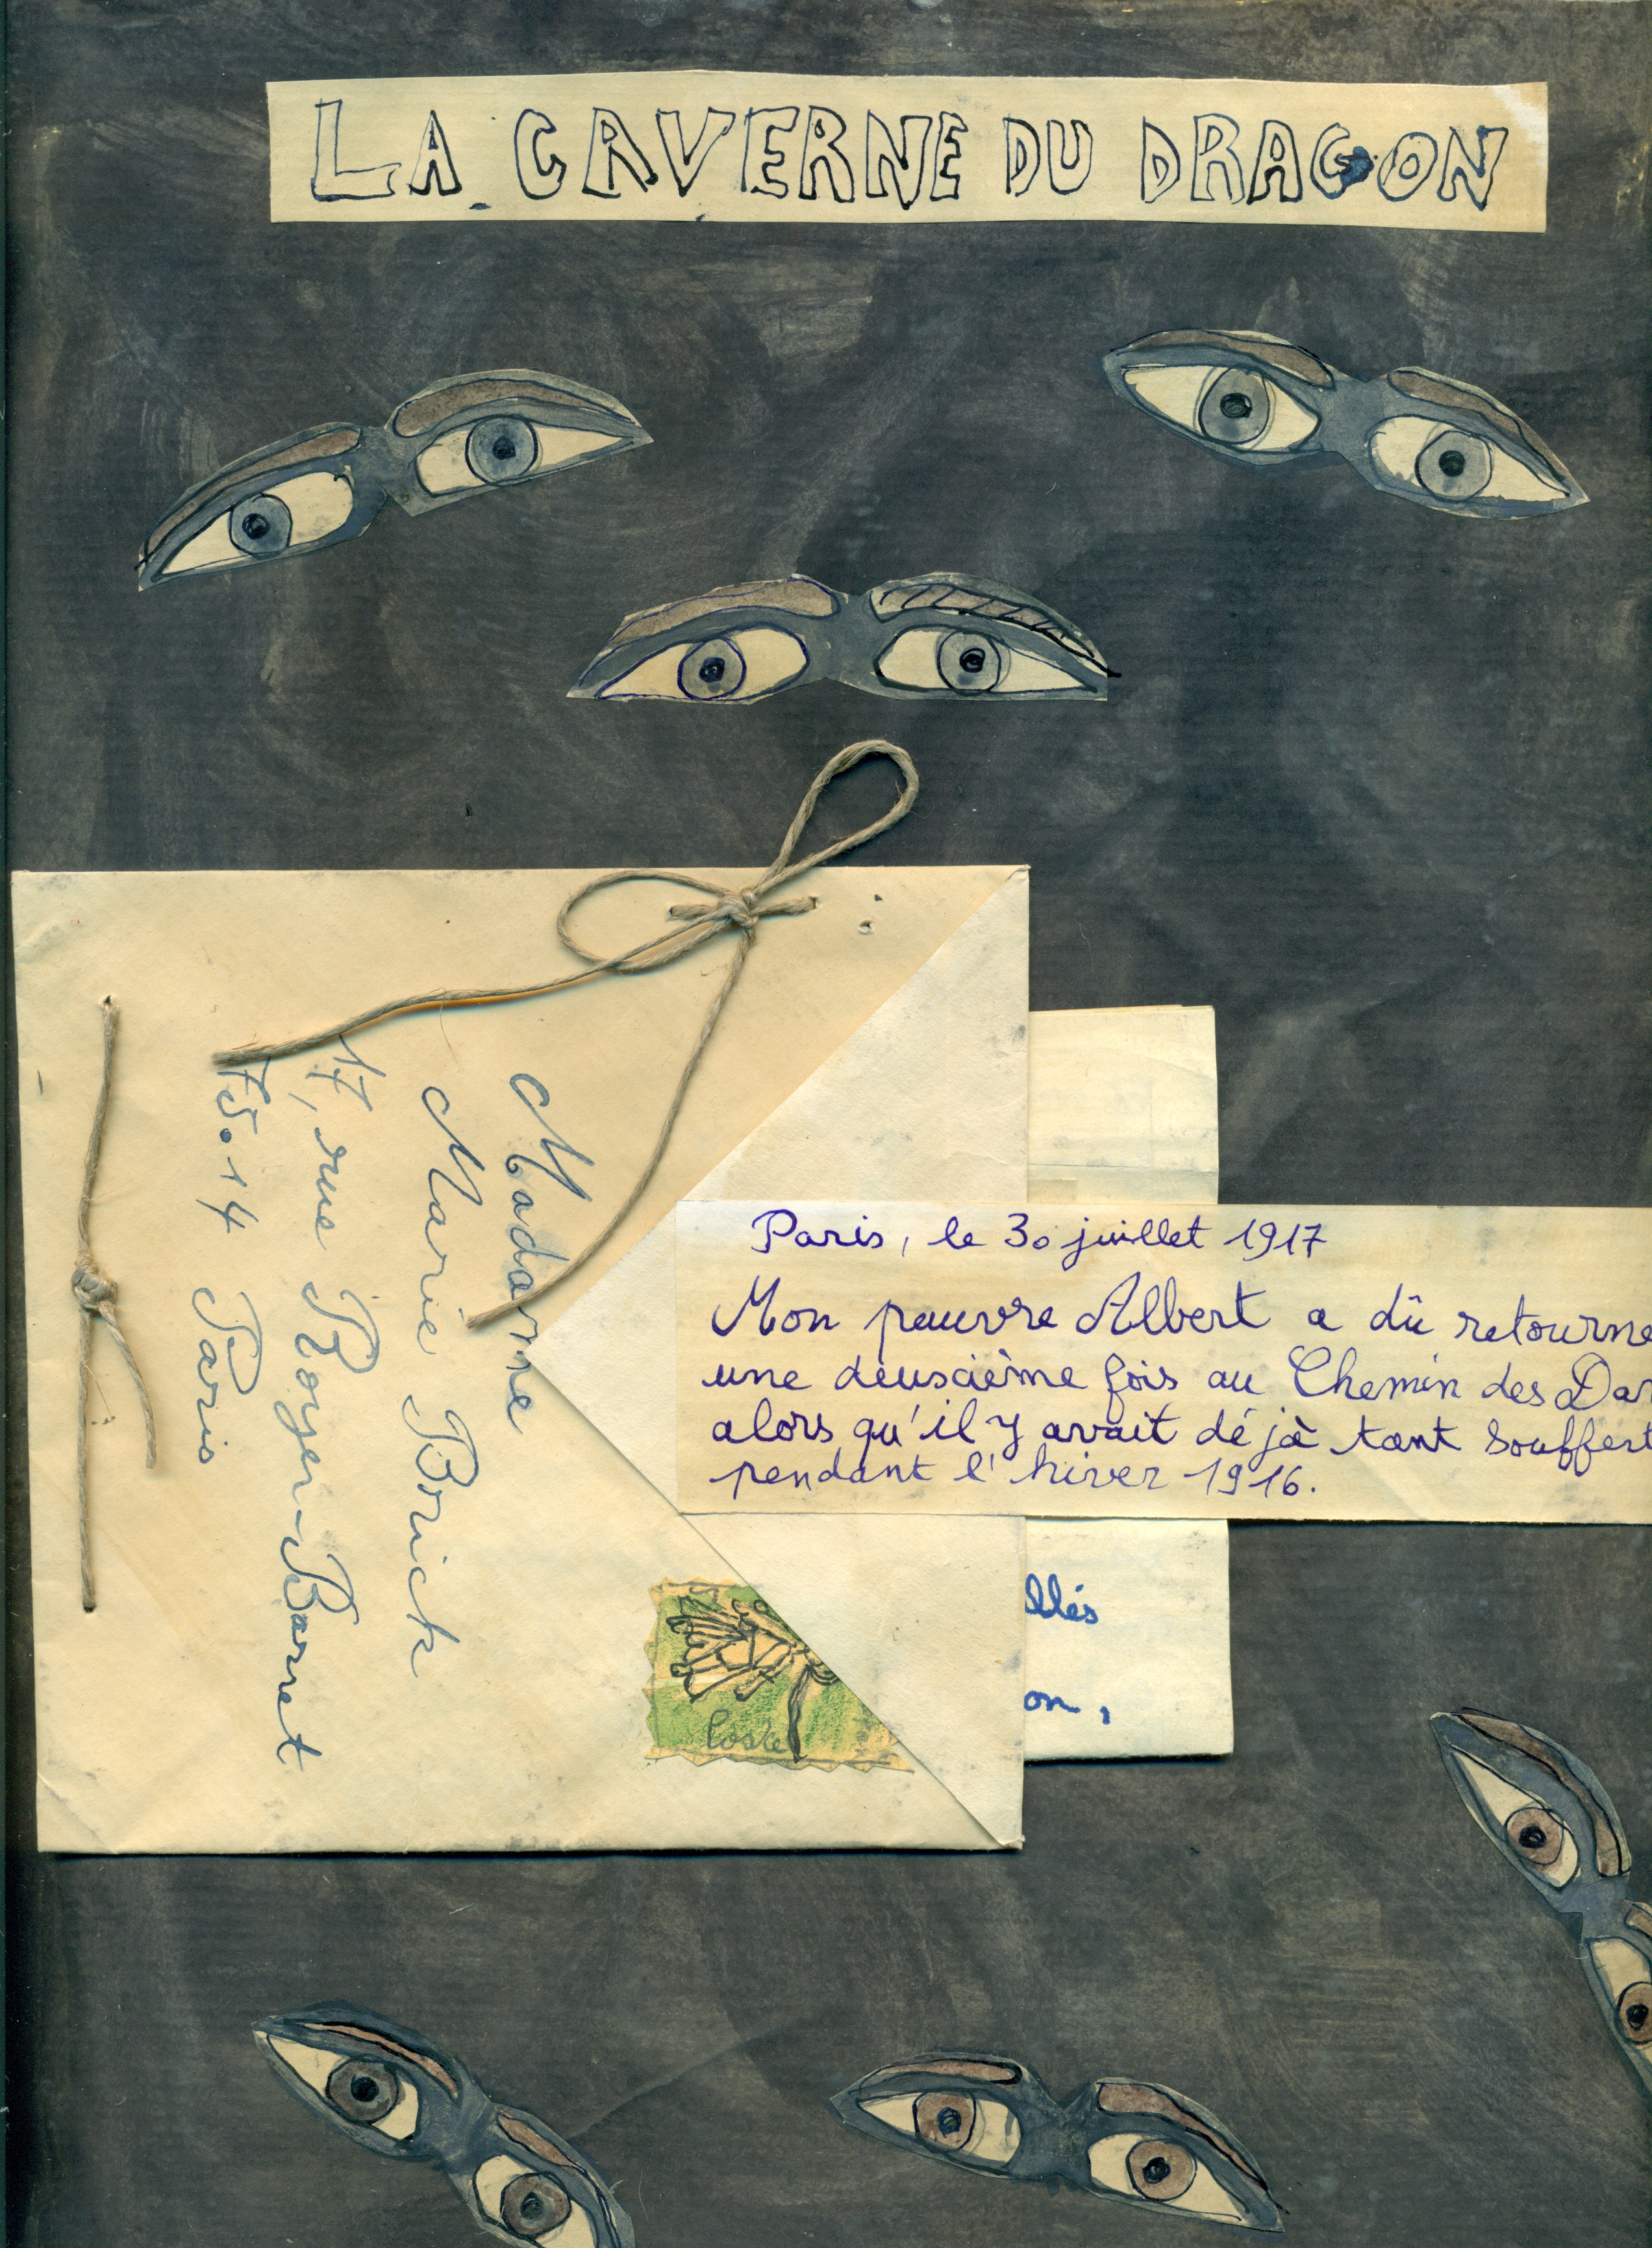 LA CAVERNE DU DRAGON
Madame
Marie Borick
17, rue Boyer-Barret
75.14 Paris
Paris, le 30 juillet 1917
Mon pauvre Albert a dû retourne
une deuxième fois au Chemin des Da
alors qu'il y avait déjà tant souffert
pendant l'hiver 1916.
llés
on,
Poste